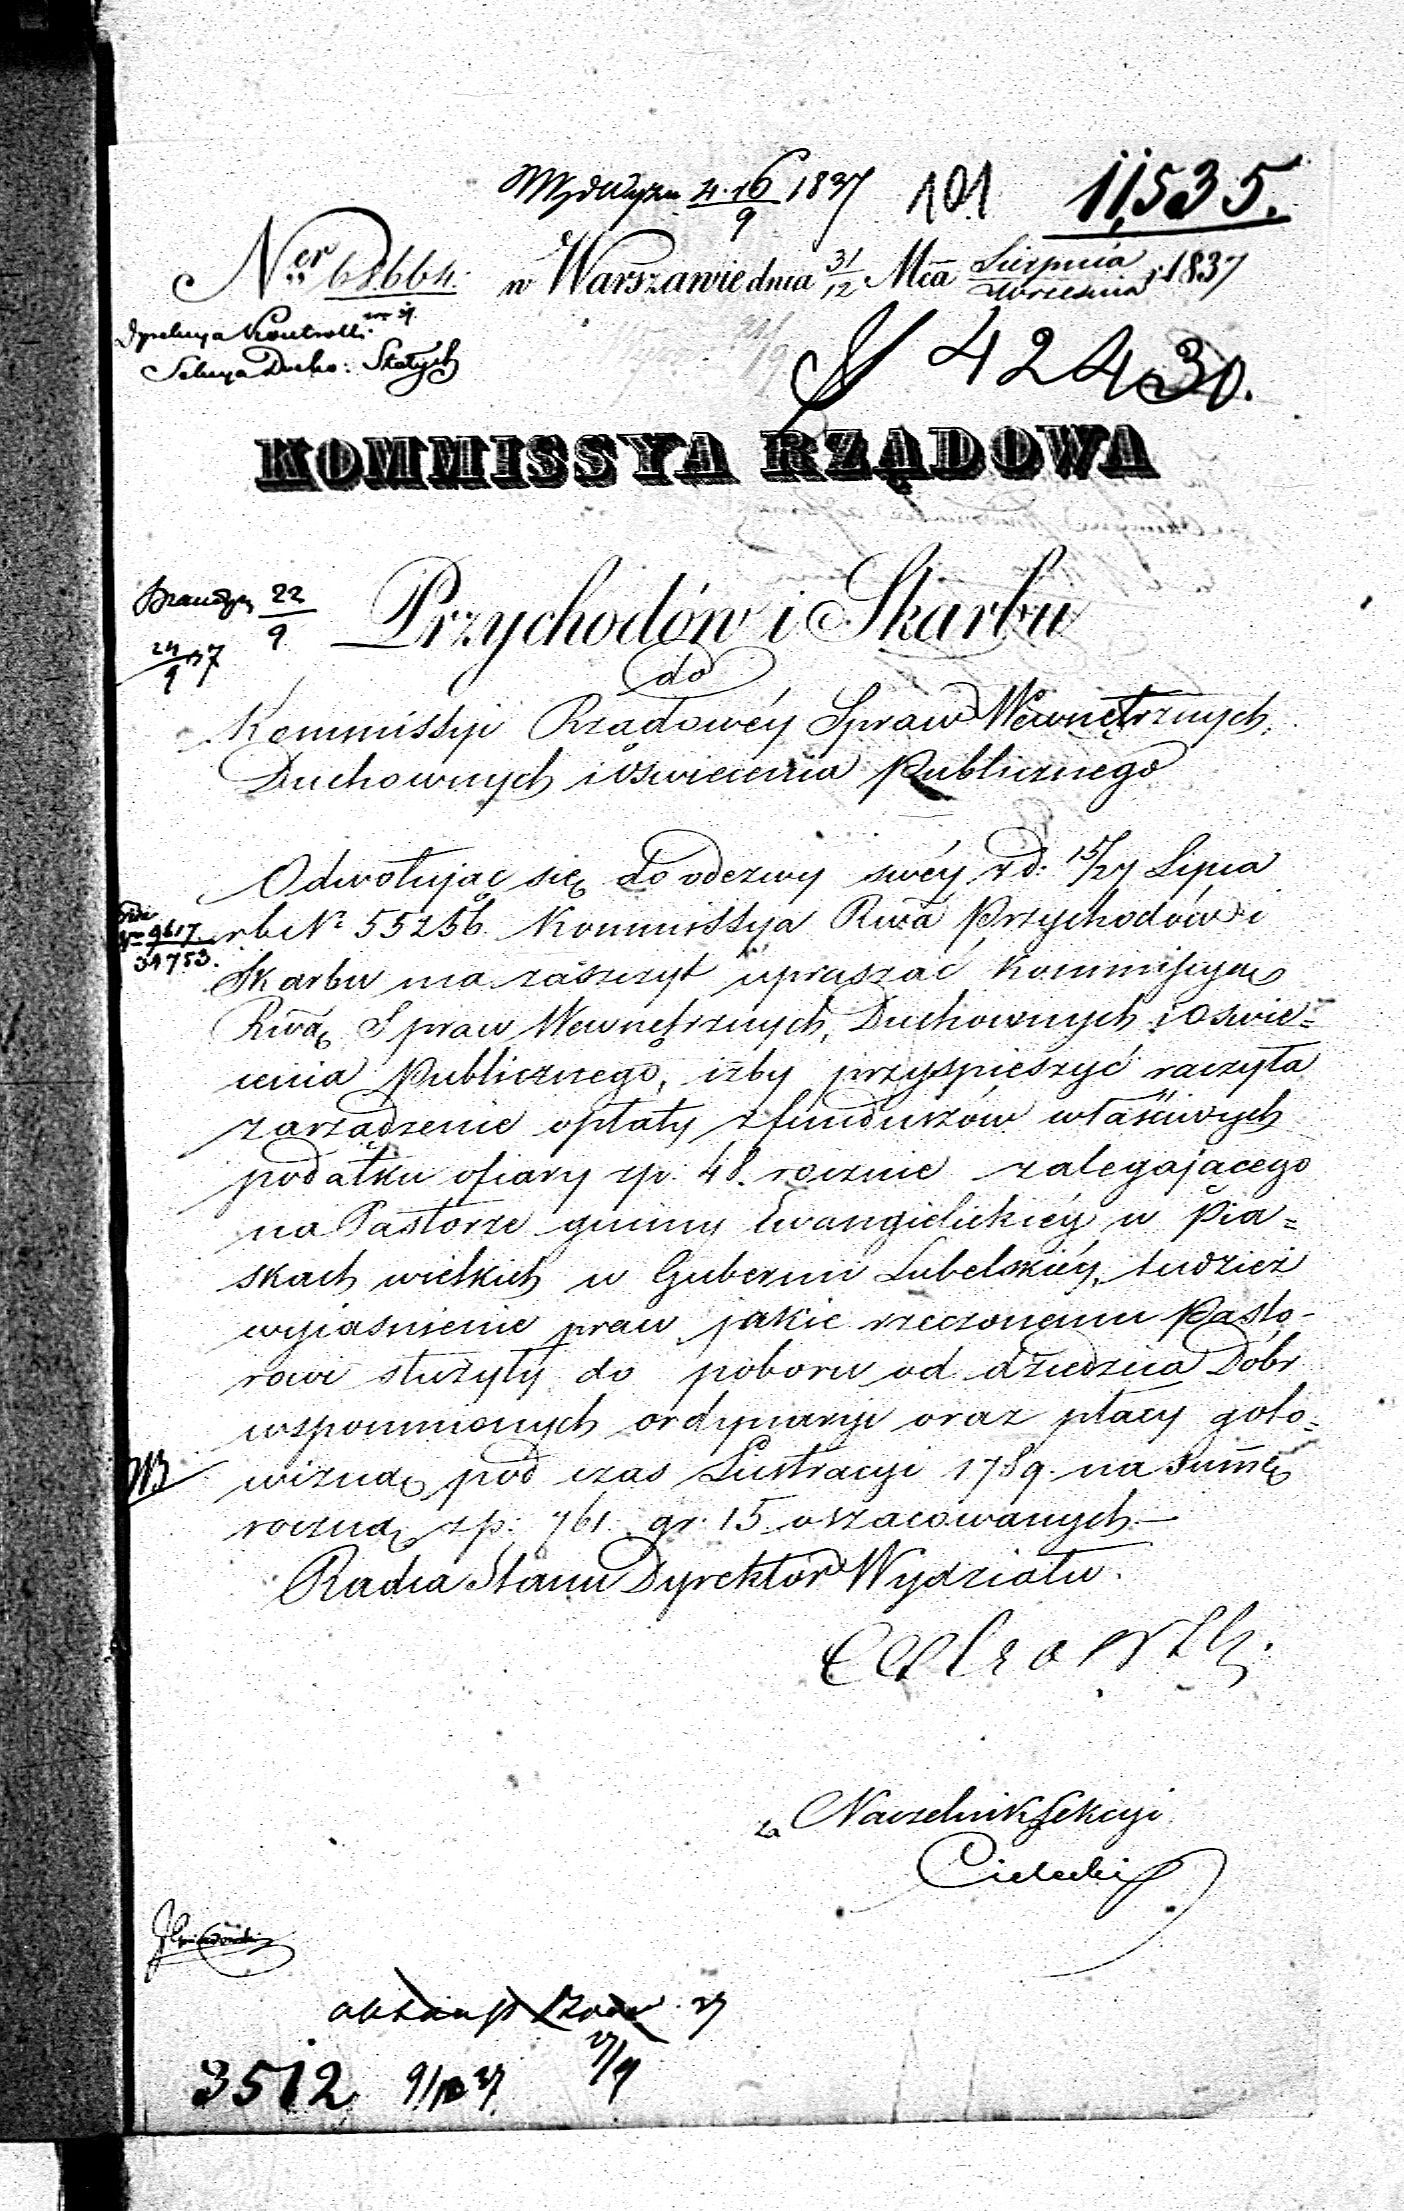 4. 16/9 1837 101 11,535.
Ner 68664. w Warszawie dnia 31/12 Mca Sierpnia/Września r. 1837
Kontroll
Sekcya Docho: Stałych
42430.
KOMMISSYA RZĄDOWA
22/9
Przychodów i Skarbu
24/9 37
do
Kommissyi Rządowéy Spraw Wewnętrznych,
Duchownych i Oswiecenia Publicznego
Odwołując się do odezwy swéy z d: 15/27 Lipca
9617/34753.
r b No 55256. Kommissya Rwa Przychodów i
Skarbu ma zaszczyt upraszać Kommissyą
Rwą Spraw Wewnętrznych, Duchownych i Oswie=
cenia Publicznego, iżby przyspieszyć raczyła
zarządzenie opłaty z funduszów właściwych
podatku ofiary zp: 48. rocznie zalegającego
na Pastorze gminy Ewangielickiéy w Pia=
skach wielkich w Gubernii Lubelskiéy, tudzież
wyiasnienie praw jakie rzeczonemu Pasto-
rowi służyły do poboru od dziedzica Dóbr
wspomnionych ordynaryi oraz płacy goto=
NB
wizną pod czas Lustracyi 1789. na summę
roczną zp: 761. gr. 15. oszacowanych.—
Radca Stanu Dyrektor Wydziału.
za Naczelnik Sekcyi
Cielecki
37
3512 9/10 37 27/9